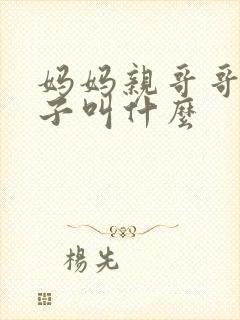 妈妈親哥哥
子叫什麼
楊先